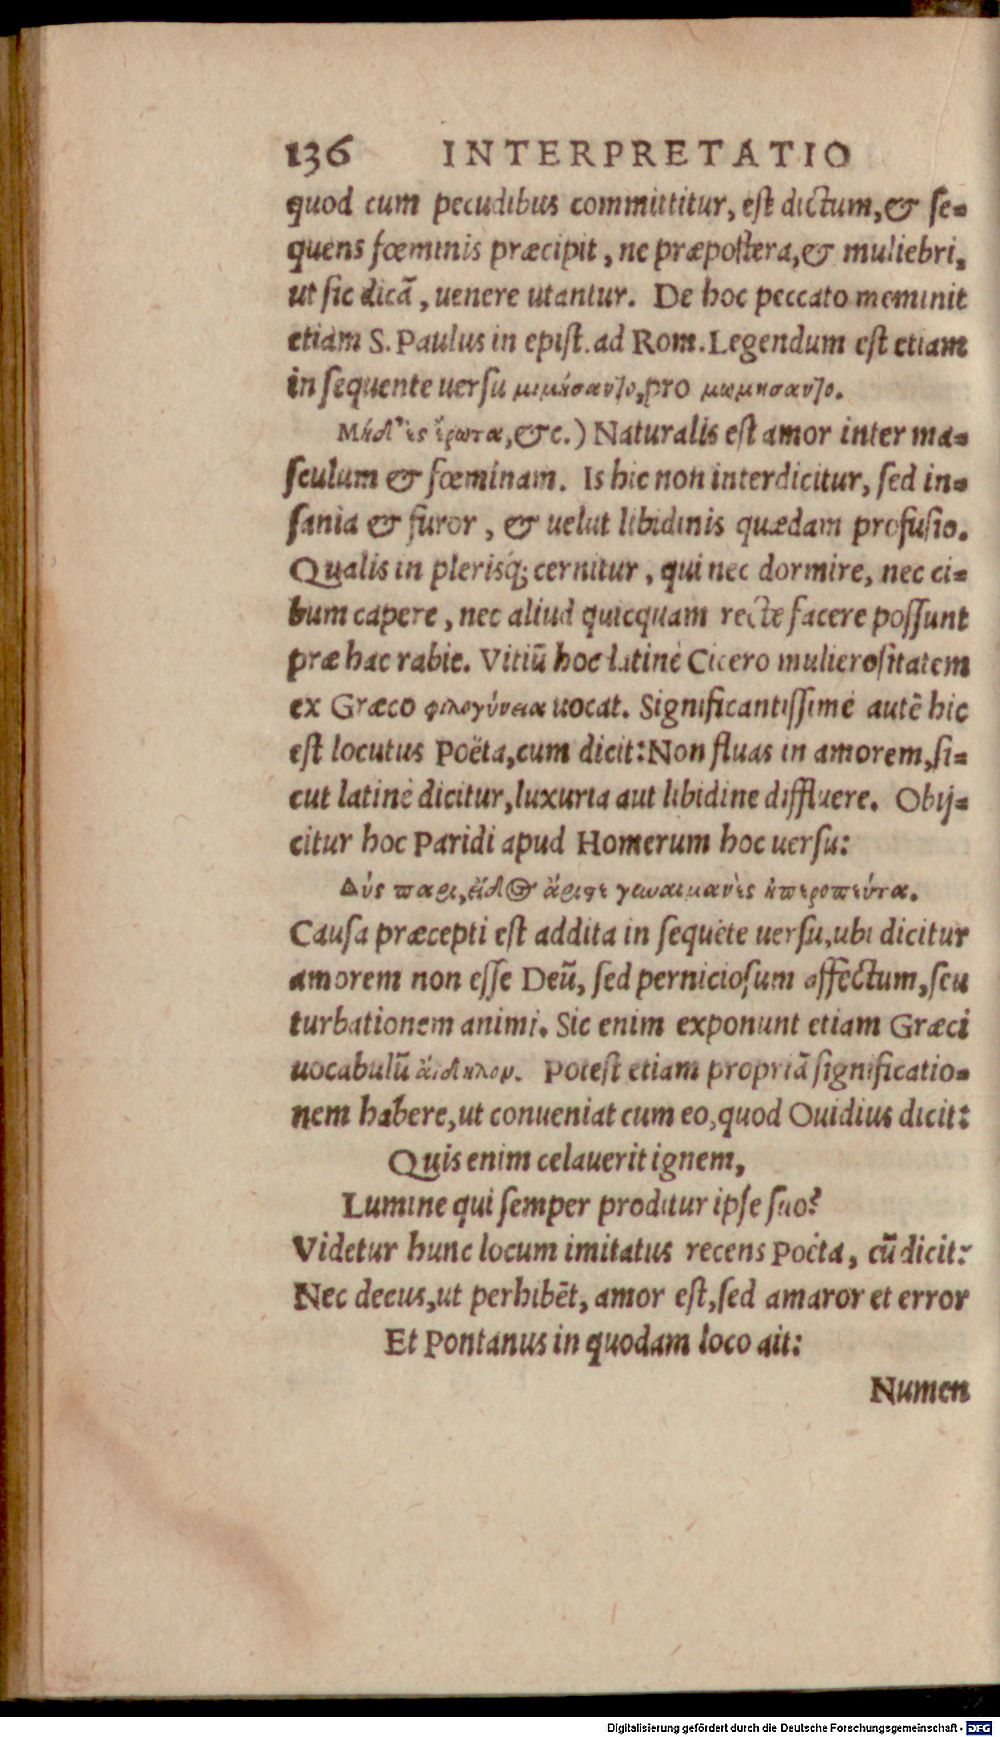 136 INTERPRETATIO
quod cum pecudibus committitur, est dictum, & se-
quens fœminis præcipit, ne præpostera, & muliebri,
ut sic dicā, uenere utantur. De hoc peccato meminit
etiam S. Paulus in epist. ad Rom. Legendum est etiam
in sequente uersu μιμήσαντο, pro μωμησαντο.
Μηδ' ἐς ἔρωτα, &c.) Naturalis est amor inter ma-
sculum & fœminam. Is hic non interdicitur, sed in-
sania & furor, & uelut libidinis quædam profusio.
Qualis in plerisq́; cernitur, qui nec dormire, nec ci-
bum capere, nec aliud quicquam recte facere possunt
præ hac rabie. Vitiū hoc latinè Cicero mulierositatem
ex Græco φιλογύνεια uocat. Significantissimè autē hic
est locutus Poëta, cum dicit: Non fluas in amorem, si-
cut latinè dicitur, luxuria aut libidine diffluere. Obij-
citur hoc Paridi apud Homerum hoc uersu:
Δύς παρι, εἶδος ἄριστε γυναιμανὲς ἠπεροπεύτα.
Causa præcepti est addita in sequēte uersu, ubi dicitur
amorem non esse Deū, sed perniciosum affectum, seu
turbationem animi. Sic enim exponunt etiam Græci
uocabulū ἀίδηλον. Potest etiam propriā significatio-
nem habere, ut conueniat cum eo, quod Ouidius dicit:
Quis enim celauerit ignem,
Lumine qui semper proditur ipse suo?
Videtur hunc locum imitatus recens Poëta, cū dicit:
Nec decus, ut perhibēt, amor est, sed amaror et error
Et Pontanus in quodam loco ait:
Numen
Digitalisierung gefördert durch die Deutsche Forschungsgemeinschaft - DFG